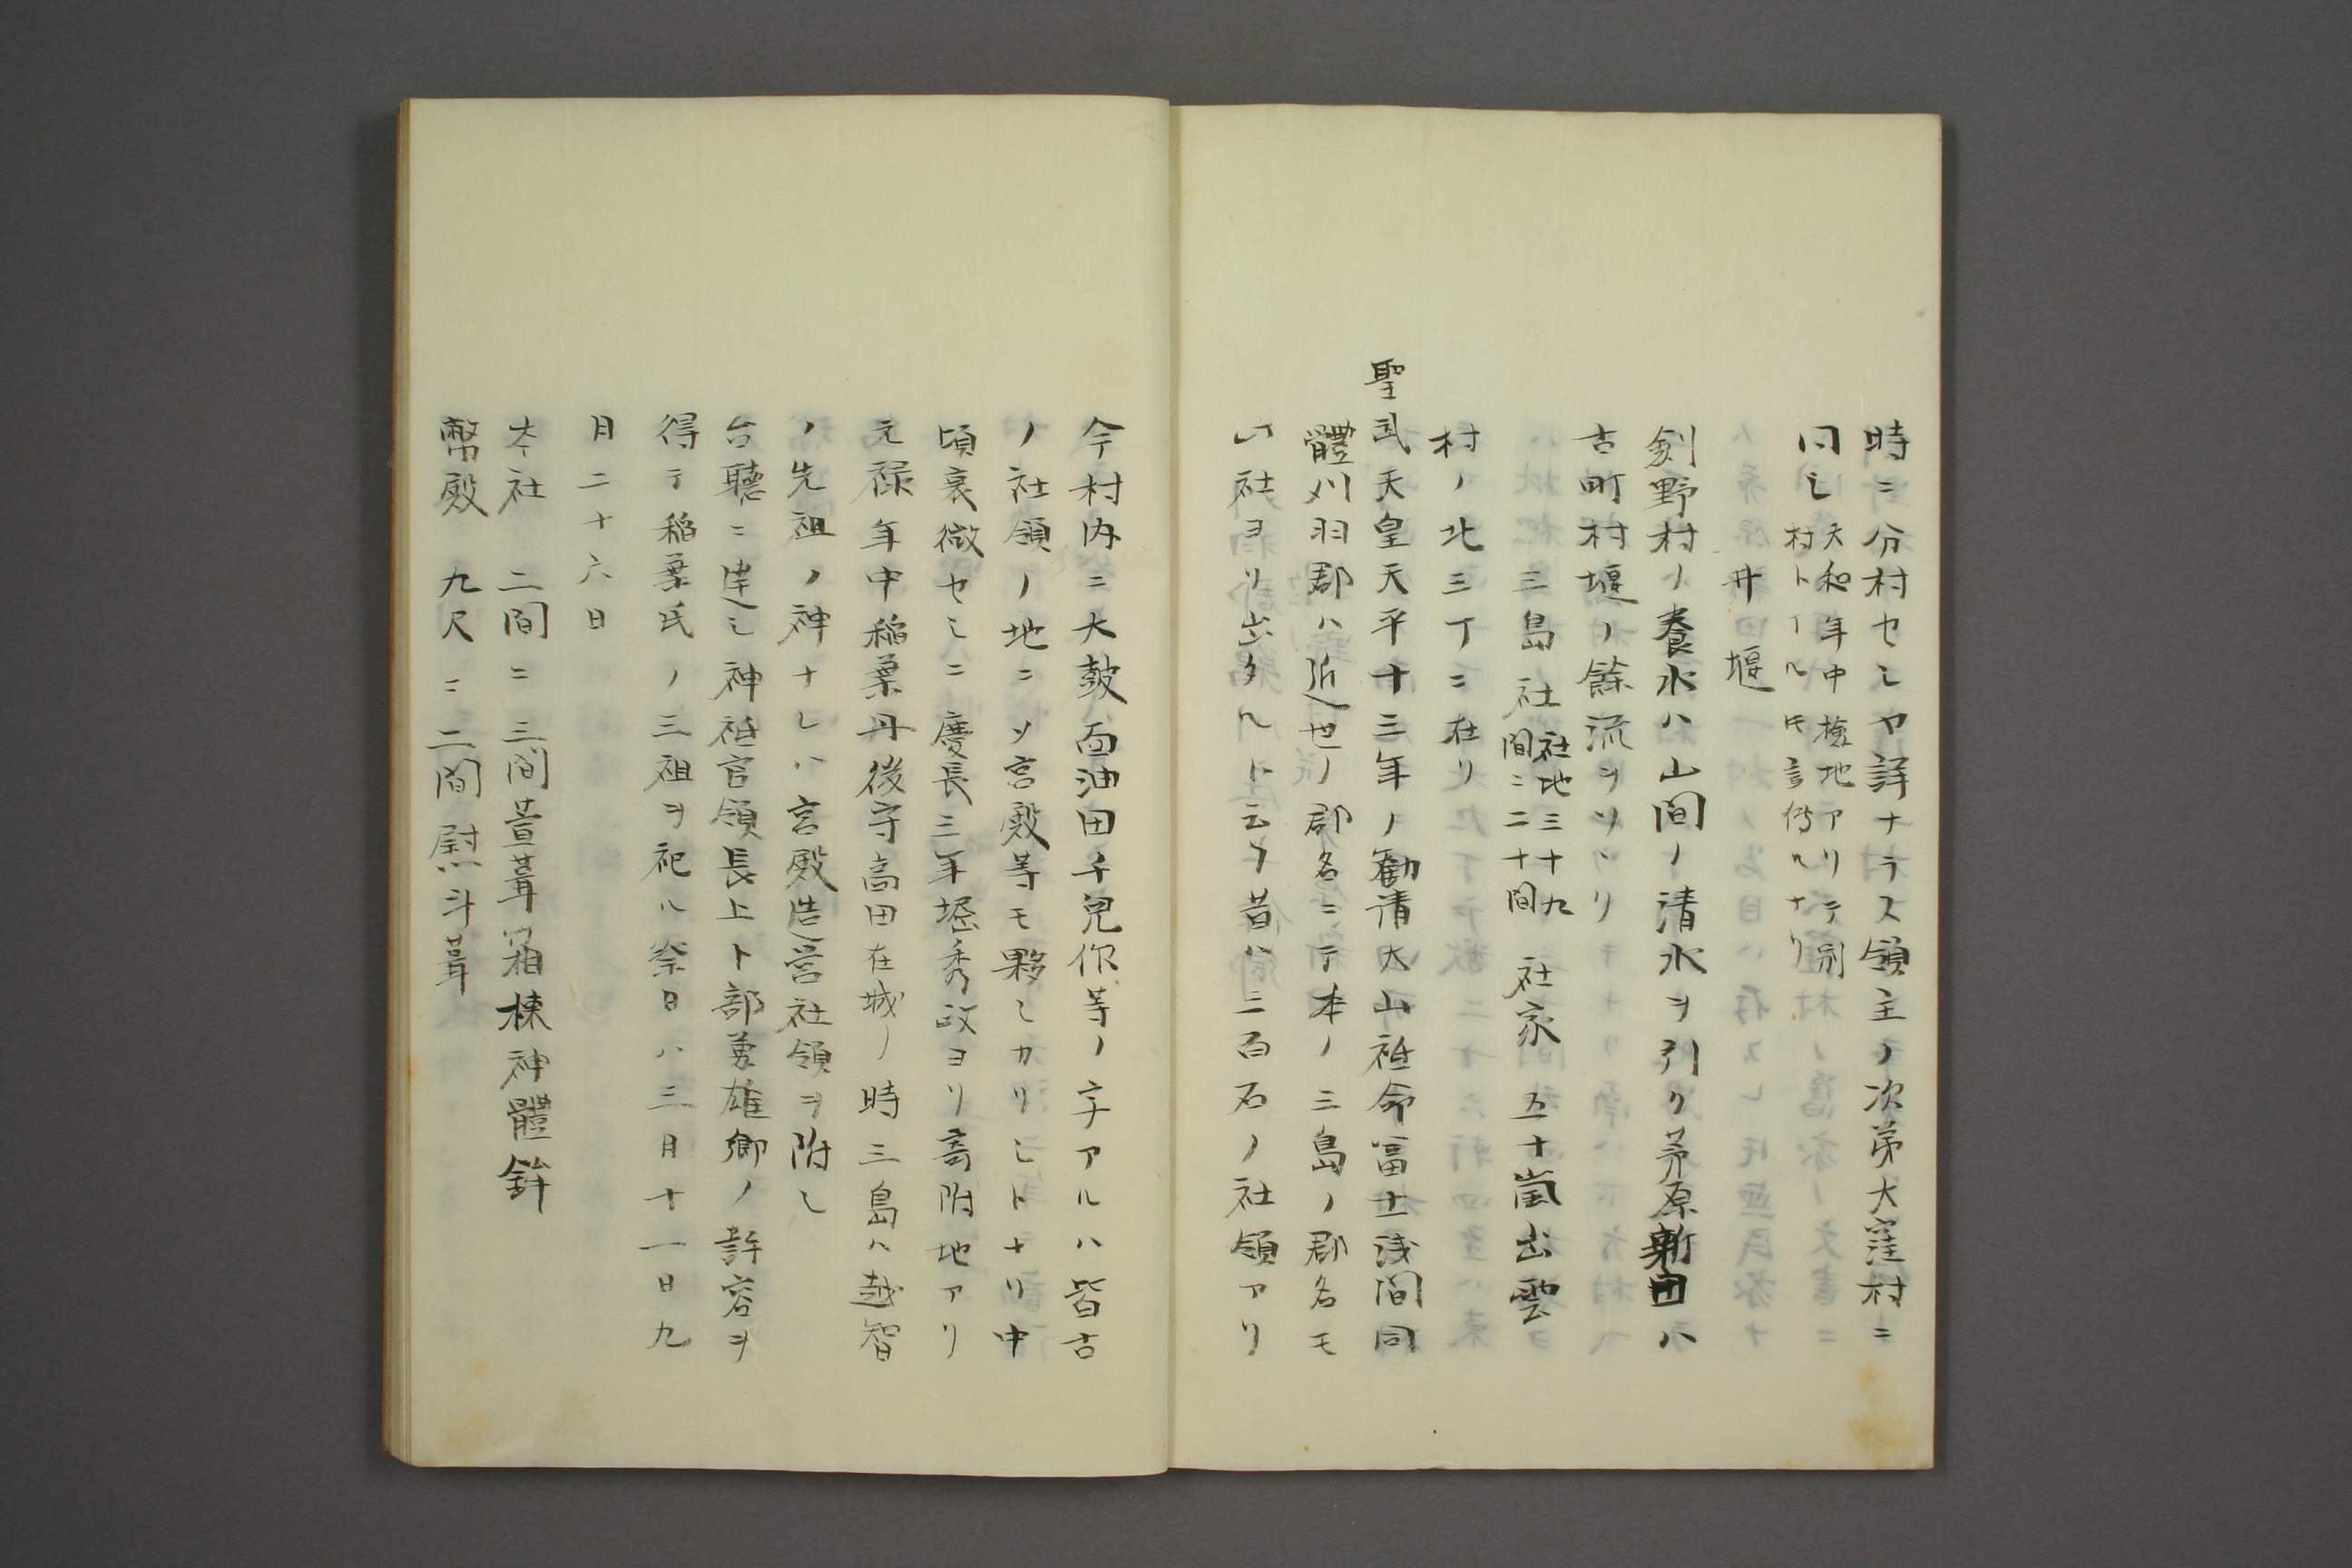 時ニ分村セシヤ詳ナラス領主ノ次第大窪村ニ
同シ
天和年中検地アリテ別
村トナル氏言傳ルナリ
井堰
剣野村ノ養水ハ山間ノ清水ヲ引ク茅原新田ハ
古町村堰ノ餘流ヲソヽリ
三島社
社地三十九
間ニ二十間
社家 五十嵐出雲
村ノ北三丁ニ在リ
聖武天皇天平十三年ノ勸請大山祗命冨士浅間同
體刈羽郡ハ近世ノ郡名ニテ本ノ三島ノ郡名モ
此社ヨリ出タルト云フ昔ハ三百石ノ社領アリ
今村内ニ大鼓面油田千兒作等ノ字アルハ皆古
ノ社領ノ地ニソ宮殿等モ夥シカリシトナリ中
頃衰微セシニ慶長三年堀秀政ヨリ寄附地アリ
元禄年中稲葉丹後守高田在城ノ時三島ハ越智
ノ先祖ノ神ナレハ宮殿造營社領ヲ附シ
台聽ニ達シ神祗官領長上卜部兼雄卿ノ許容ヲ
得テ稲葉氏ノ三祖ヲ祀ル祭日ハ三月十一日九
月二十六日
本社 二間ニ三間萱葺箱棟神體鉾
幣殿 九尺ニ二間熨斗葺